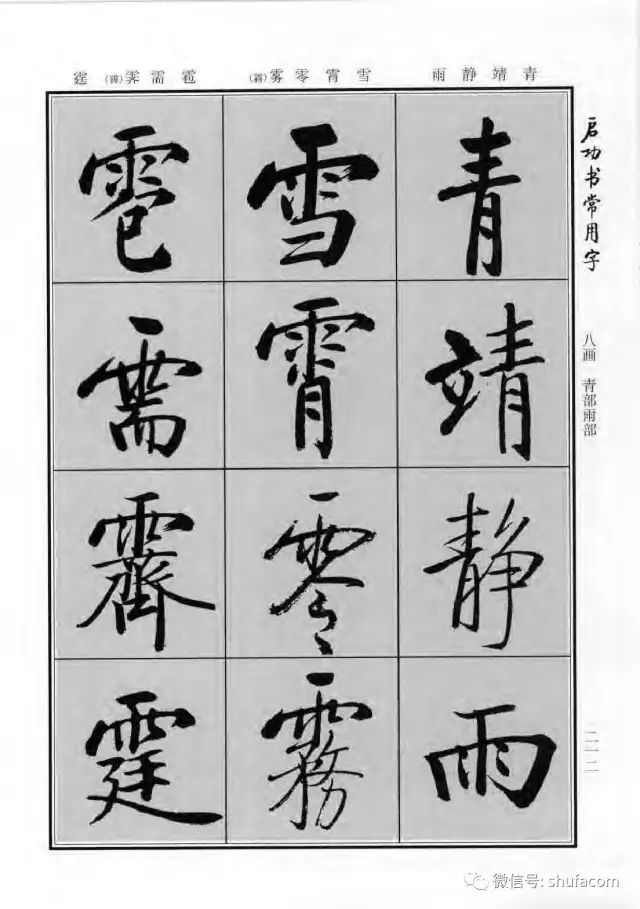 启功书常用字
八画 青部雨部
二一二
青靖静雨
雪霄零雾(霧)
雹需霁(霽)霆
青
靖
静
雨
雪
霄
零
霧
雹
需
霽
霆
微信号: shufacom